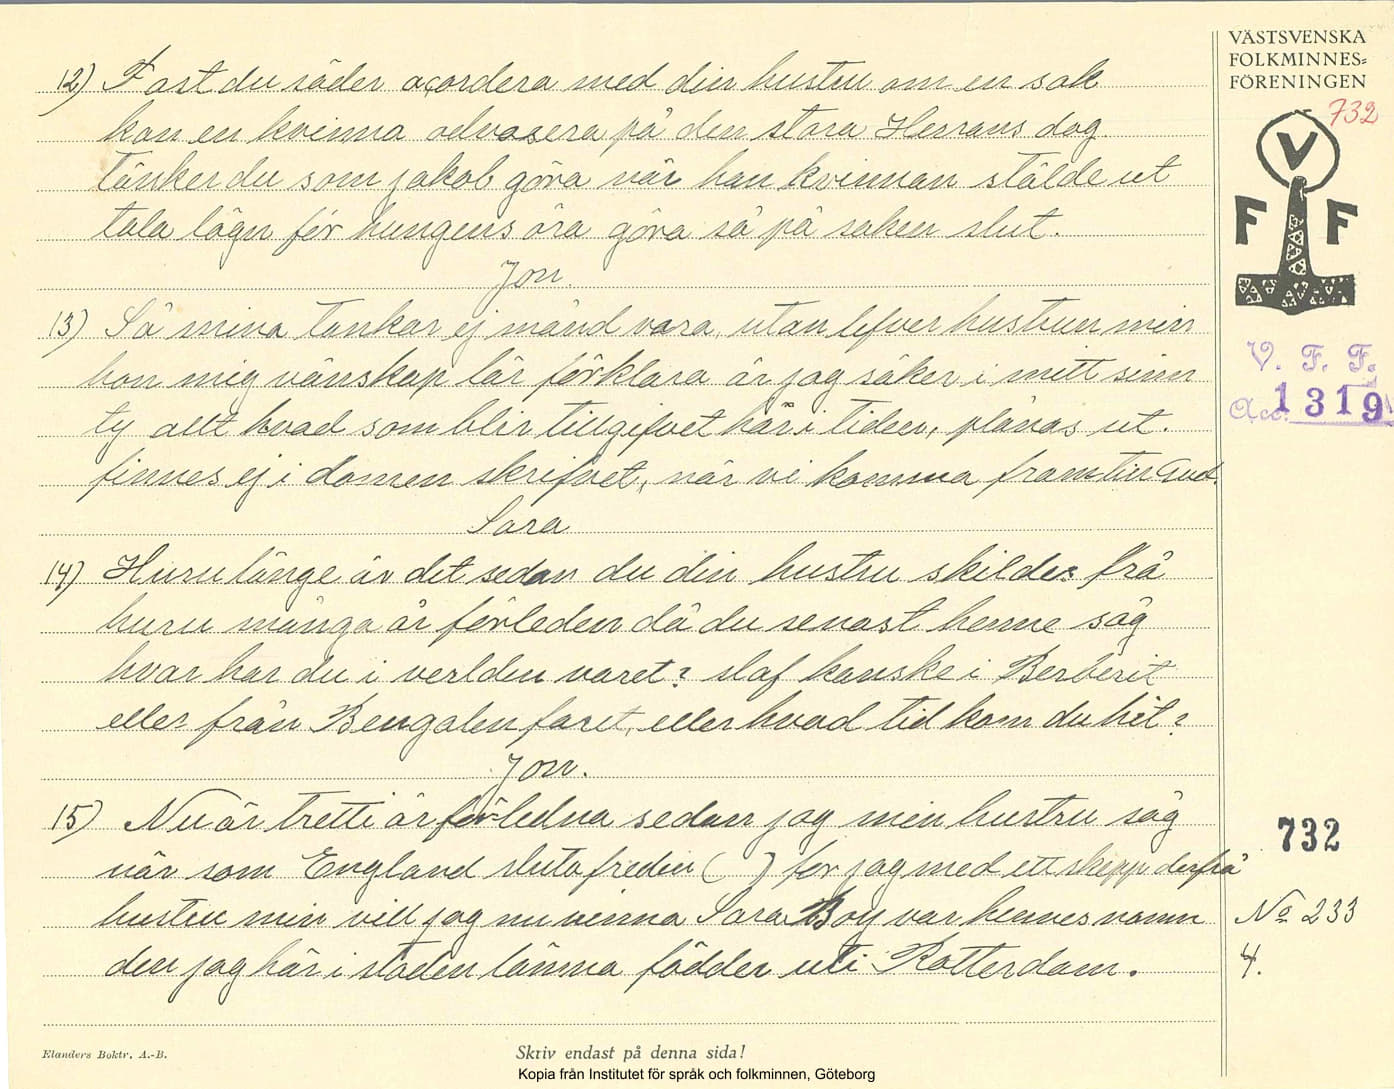 VÄSTSVENSKA
FOLKMINNES=
FÖRENINGEN
732
V
F F
V. F. F.
Acc. 1319
12) Fast du säder acordera med din hustru om en sak
kan en kvinna advosera på den stora Herrans dag
tänker du som jakob göra när han kvinnan stälde ut
tala lögn för kungens öra göra så på saken slut.
Jon.
13) Så mina tankar ej månd vara, utan lefver hustrun min
hon mig vänskap lär förklara är jag säker i mitt sinn
ty allt hvad som blir tillgifvet här i tiden, plånas ut.
finnes ej i domen skrifvet, när vi komma fram till Gud.
Sara
14) Huru länge är det sedan du din hustru skildes frå
huru många år förleden då du senast henne såg
hvar har du i verlden varet? slaf kanske i Berberit
eller från Bengalen faret, eller hvad tid kom du hit?
Jon.
15) Nu är tretti år förledna sedan jag min hustru såg
när som England sluta freden ( ) for jag med ett skepp derfrå
hustru min vill jag nu vinna Sara Boy var hennes namn
den jag här i staden lämna född­er uti Rotterdam.
732
No 233
4.
Elanders Boktr. A.-B.
Skriv endast på denna sida!
Kopia från Institutet för språk och folkminnen, Göteborg